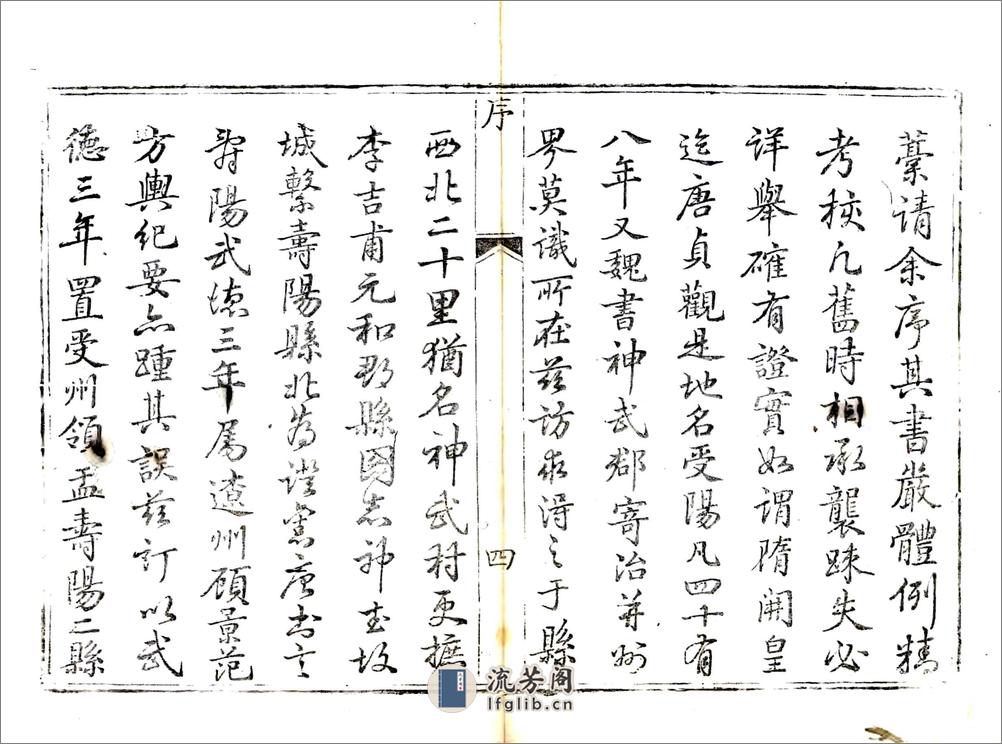 藳請余序其書嚴體例精
考核凡舊時相承襲踈失必
詳舉確有證實如謂隋開皇
迄唐貞觀是地名受陽凡四十有
八年又魏書神武郡寄治并州
界莫識所在茲訪求得之于縣
序
四
西北二十里猶名神武村更摭
李吉甫元和郡縣圖志神武故
城繫壽陽縣北為證舊唐書言
壽陽武德三年屬遼州顧景范
方輿紀要亦踵其誤茲訂以武
德三年置受州領盂壽陽二縣
流芳阁
lfglib.cn